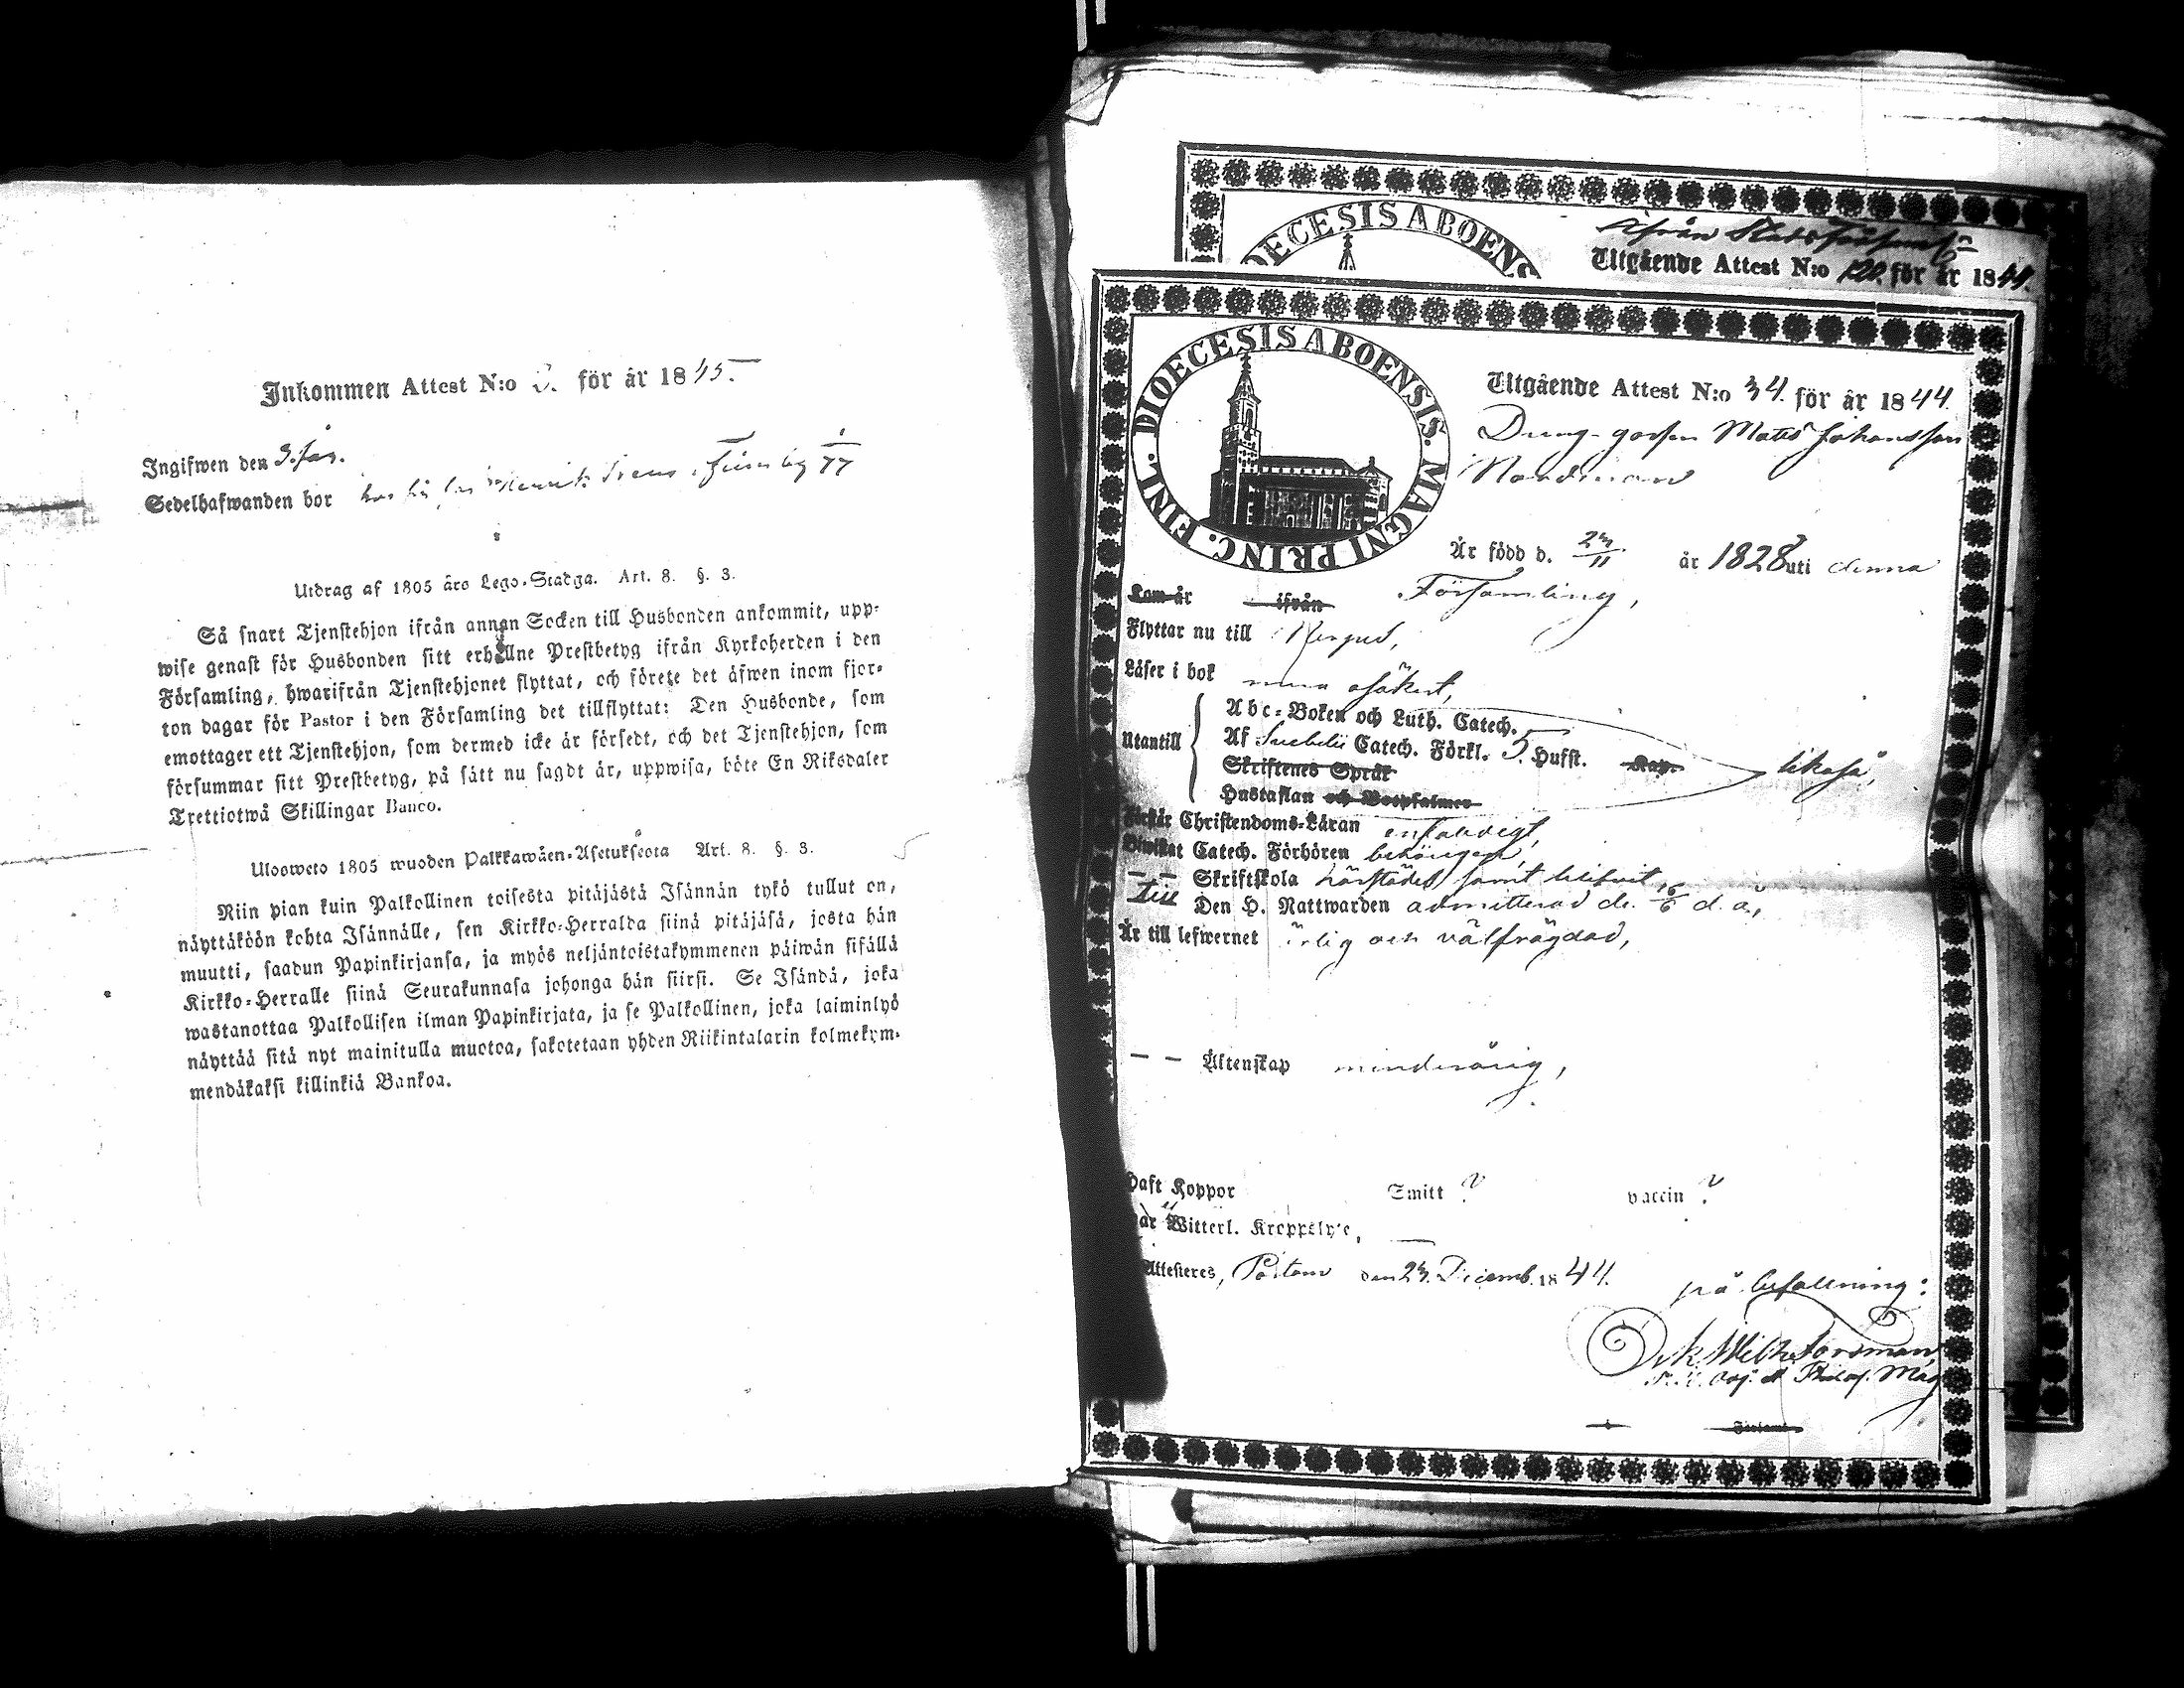 Inkommen Attest N:o 3. för år 1845.
Ingifwen den 3. Jan.
Sedelhafwanden bor hos
Utdrag af 1805 års Lego-Stadga. Art. 8. §. 3.
Så snart Tjenstehjon ifrån annan Socken till Husbonden ankommit, upp-
wise genast för Husbonden sitt erhållne Prestbetyg ifrån Kyrkoherden i den
Församling, hwarifrån Tjenstehjonet flyttat, och förete det äfwen inom fjor-
ton dagar för Pastor i den Församling det tillflyttat: Den Husbonde, som
emottager ett Tjenstehjon, som dermed icke är försedt, och det Tjenstehjon, som
försummar sitt Prestbetyg, på sätt nu sagdt är, uppwisa, böte En Riksdaler
Trettiotwå Skillingar Banco.
Ulosweto 1805 wuoden Palkkawäen-Asetuksesta Art. 8. §. 3.
Niin pian kuin Palkollinen toisesta pitäjästä Isännän tykö tullut on,
näyttäköön kohta Isännälle, sen Kirkko-Herralda siinä pitäjäsä, josta hän
muutti, saadun Papinkirjansa, ja myös neljäntoistakymmenen päiwän sisällä
Kirkko-Herralle siinä Seurakunnasa johonga hän siirsi. Se Isändä, joka
wastanottaa Palkollisen ilman Papinkirjata, ja se Palkollinen, joka laiminlyö
näyttää sitä nyt mainitulla muotoa, sakotetaan yhden Riikintalarin kolmekym-
mendäkaksi killinkiä Bankoa.
DIOECESIS ABOENS
Utgående Attest N:o 120. för år 1844.
DIOECESIS ABOENSIS. MAGNI PRINC. FINL.
Utgående Attest N:o 34. för år 1844.
Dreng-gossen Mats Johansson
Nordman
Är född d. 23/11 år 1828 uti denna
Församling,
Kom år ifrån
Flyttar nu till Nerpes,
Läser i bok osäkert,
Utantill
Abc-Boken och Luth. Catech.
Af Svebelii Catech. Förkl. 5. Hufst. Kap.
Skriftenes Språk
Hustaflan och Botpsalmer
likaså,
Förstår Christendoms-Läran enfaldigt,
Biwistat Catech. Förhören behörigen,
— — Skriftskola härstädes samt blifvit,
till Den H. Nattwarden admitterad d. 16/6 d. å.,
Är till lefwernet ärlig och välfrägdad,
— — Äktenskap minderårig,
Haft Koppor Smitt ? vaccin ?
Har Witterl. Kroppslyte, —
Attesteres, Pörtom den 23. Decemb. 1844.
på befallning:
Forsman
Församl.